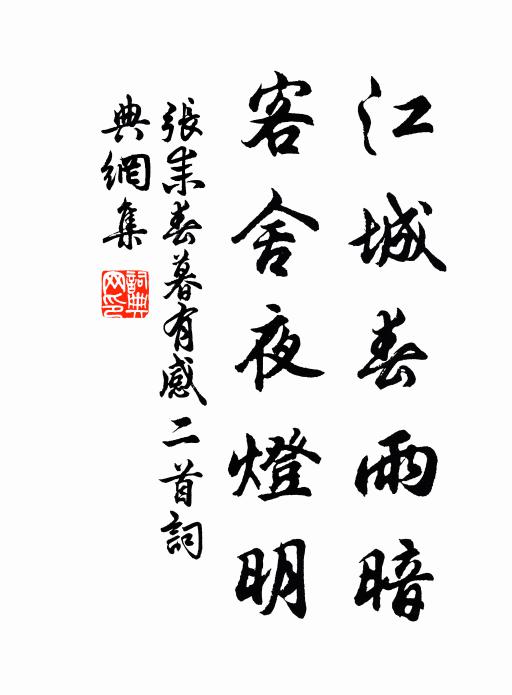 江城春雨暗
客舍夜燈明
張耒春暮有感二首詞
典網集
詞典
网印